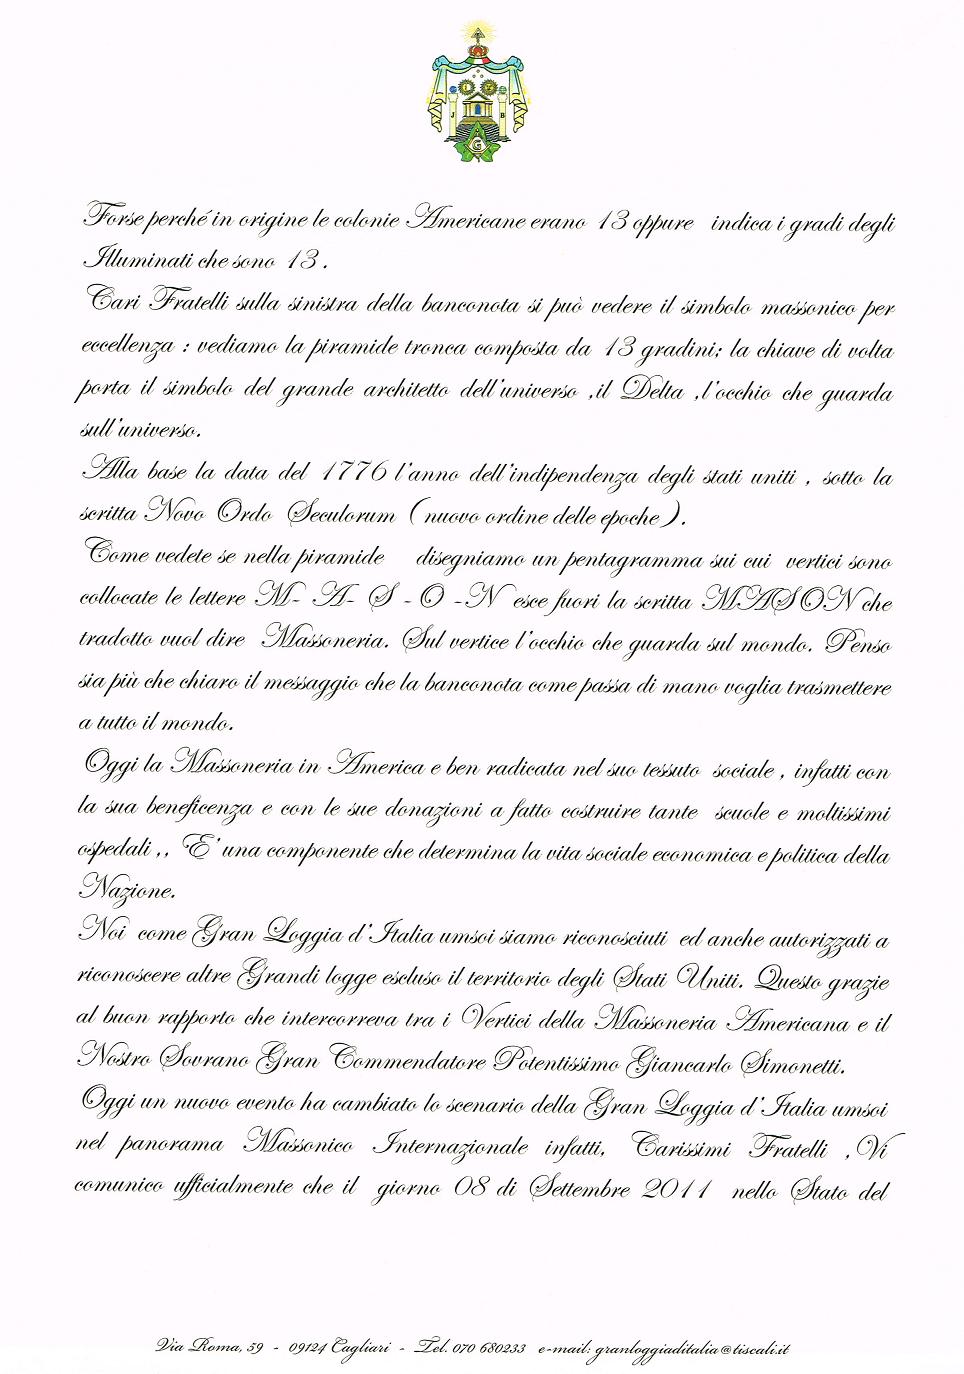 J B
G
Forse perché in origine le colonie Americane erano 13 oppure indica i gradi degli
Illuminati che sono 13 .
Cari Fratelli sulla sinistra della banconota si può vedere il simbolo massonico per
eccellenza : vediamo la piramide tronca composta da 13 gradini; la chiave di volta
porta il simbolo del grande architetto dell'universo ,il Delta ,l'occhio che guarda
sull'universo.
Alla base la data del 1776 l'anno dell'indipendenza degli stati uniti , sotto la
scritta Novo Ordo Seculorum ( nuovo ordine delle epoche ) .
Come vedete se nella piramide disegniamo un pentagramma sui cui vertici sono
collocate le lettere M- A- S - O -N esce fuori la scritta MASON che
tradotto vuol dire Massoneria. Sul vertice l'occhio che guarda sul mondo. Penso
sia più che chiaro il messaggio che la banconota come passa di mano voglia trasmettere
a tutto il mondo.
Oggi la Massoneria in America e ben radicata nel suo tessuto sociale , infatti con
la sua beneficenza e con le sue donazioni a fatto costruire tante scuole e moltissimi
ospedali , , E' una componente che determina la vita sociale economica e politica della
Nazione.
Noi come Gran Loggia d'Italia umsoi siamo riconosciuti ed anche autorizzati a
riconoscere altre Grandi logge escluso il territorio degli Stati Uniti. Questo grazie
al buon rapporto che intercorreva tra i Vertici della Massoneria Americana e il
Nostro Sovrano Gran Commendatore Potentissimo Giancarlo Simonetti.
Oggi un nuovo evento ha cambiato lo scenario della Gran Loggia d'Italia umsoi
nel panorama Massonico Internazionale infatti, Carissimi Fratelli , Vi
comunico ufficialmente che il giorno 08 di Settembre 2011 nello Stato del
Via Roma, 59 - 09124 Cagliari - Tel. 070 680233 e-mail: granloggiaditalia@tiscali.it